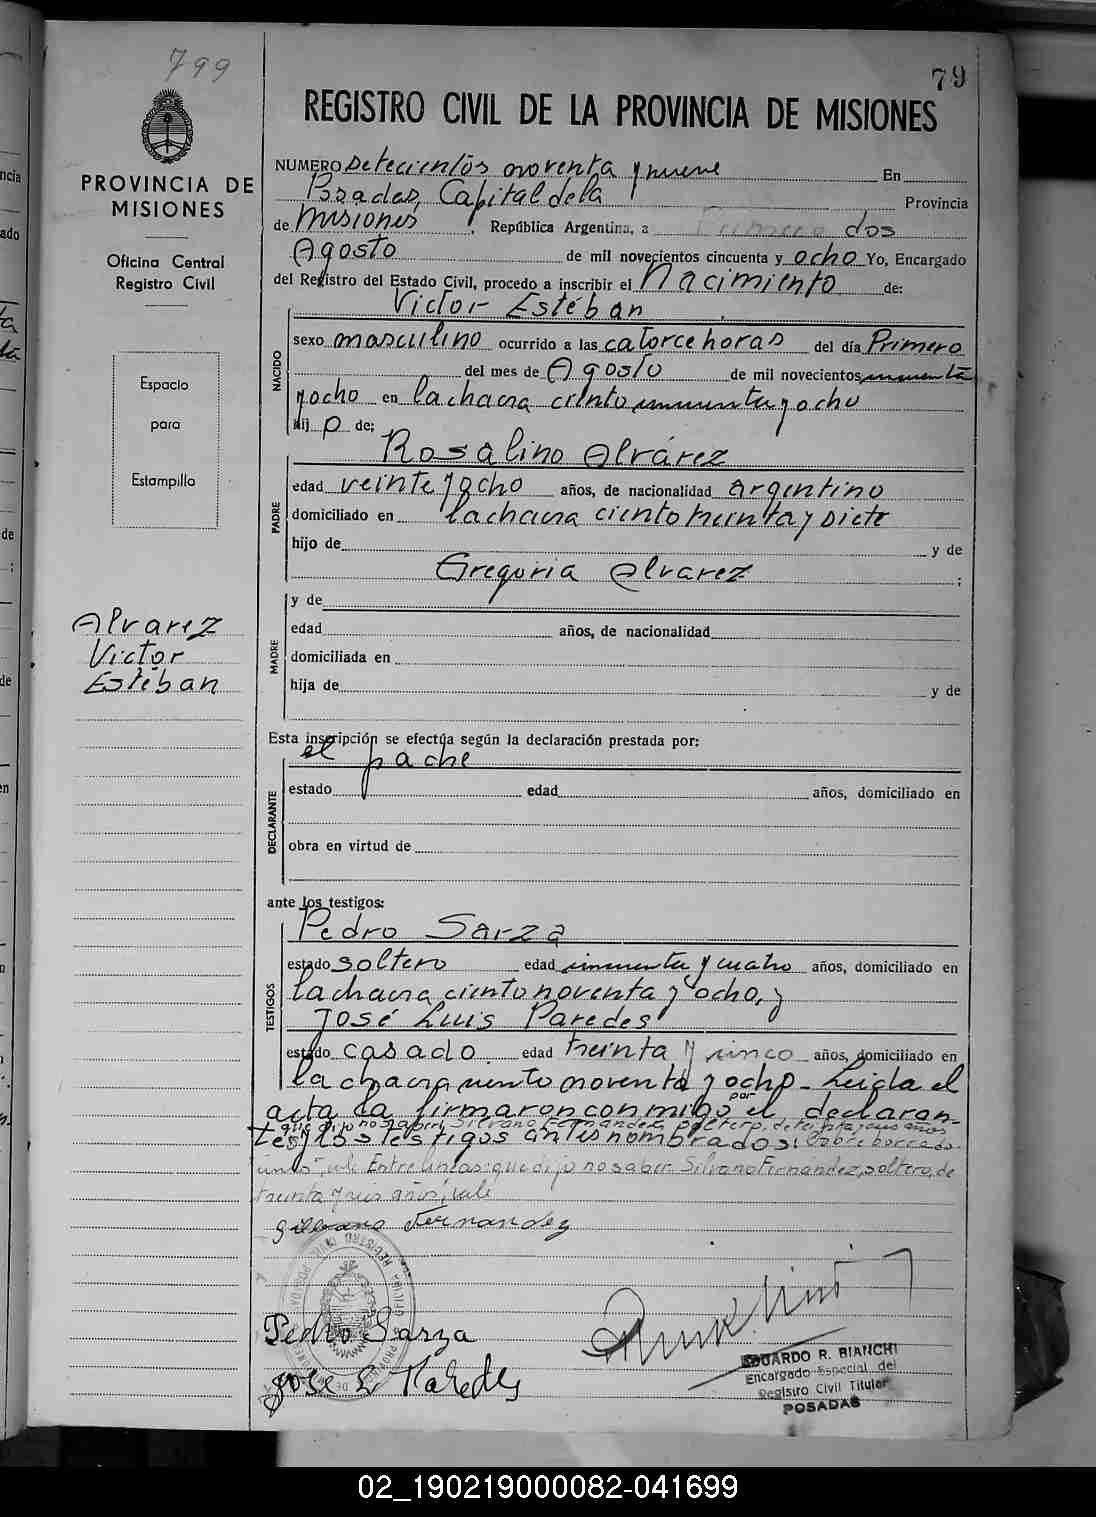 799
79
REGISTRO CIVIL DE LA PROVINCIA DE MISIONES
PROVINCIA DE
MISIONES
Oficina Central
Registro Civil
Espacio
para
Estampilla
Alvarez
Victor
Estéban
NUMERO Setecientos noventa y nueve En
Posadas, Capital de la Provincia
de Misiones, República Argentina, a Primero dos
Agosto de mil novecientos cincuenta y ocho Yo, Encargado
del Registro del Estado Civil, procedo a inscribir el Nacimiento de:
Victor Estéban
NACIDO
sexo masculino ocurrido a las catorce horas del día Primero
del mes de Agosto de mil novecientos cincuenta
y ocho en la chacra ciento cincuenta y ocho
hij o de:
Rosalino Alvárez
PADRE
edad veinte y ocho años, de nacionalidad argentino
domiciliado en la chacra ciento treinta y siete
hijo de y de
Gregoria Alvarez ;
MADRE
y de
edad años, de nacionalidad
domiciliada en
hija de y de
Esta inscripción se efectúa según la declaración prestada por:
el padre
DECLARANTE
estado edad años, domiciliado en
obra en virtud de
ante los testigos:
Pedro Sarza
TESTIGOS
estado soltero edad cincuenta y cuatro años, domiciliado en
la chacra ciento noventa y ocho, y
José Luis Paredes
estado casado edad treinta y cinco años, domiciliado en
la chacra ciento noventa y ocho - Leida el
acta la firmaron conmigo por el declaran-
que dijo no saber, Silvano Fernández, soltero, de treinta y seis años
te y los testigos antes nombrados. Sobre borrado
vale Entre lineas: que dijo no saber. Silvano Fernández, soltero, de
treinta y seis años, vale
Silvano Fernandez
Pedro Sarza
Jose L Paredes
EDUARDO R. BIANCHI
Encargado Especial del
Registro Civil Titular
POSADAS
02_190219000082-041699